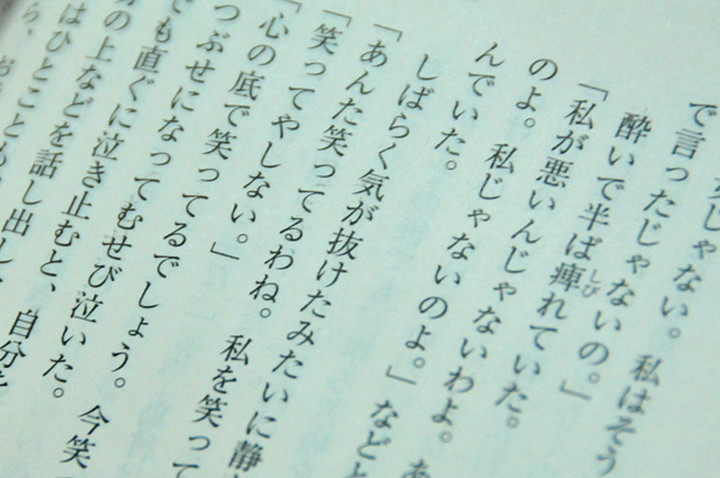 じゃない。私はそう
で言ったじゃないの。」
酔いで半ば痺れていた。
しび
「私が悪いんじゃないわよ。あ
のよ。私じゃないのよ。」などと
んでいた。
しばらく気が抜けたみたいに静
「あんた笑ってるわね。私を笑って
「笑ってやしない。」
「心の底で笑ってるでしょう。今笑
つぶせになってむせび泣いた。
でも直ぐに泣き止むと、自分を
の上などを話し出して
はひとことも
ら、お